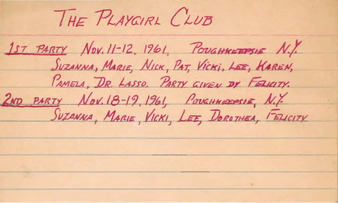 THE PLAYGIRL CLUB
1ST PARTY NOV. 11-12, 1961, POUGHKEEPSIE N.Y.
SUZANNA, MARIE, NICK, PAT, VICKI, LEE, KAREN,
PAMELA, DR. LASSO. PARTY GIVEN BY FELICITY.
2ND PARTY NOV. 18-19, 1961, POUGHKEEPSIE, N.Y.
SUZANNA, MARIE, VICKI, LEE, DOROTHEA, FELICITY